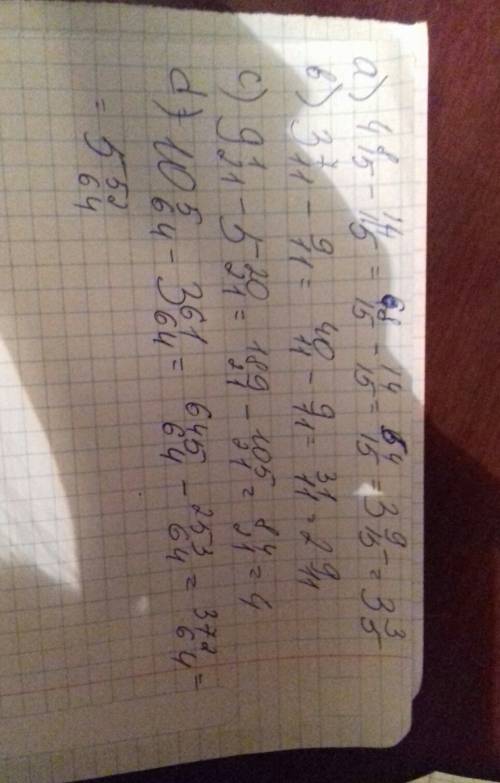 a) 4 8/15 - 14/15 = 68/15 - 14/15 = 54/15 = 3 9/15 = 3 3/5
b) 3 7/11 - 9/11 = 40/11 - 9/11 = 31/11 = 2 9/11
c) 9 1/21 - 5 20/21 = 189/21 - 105/21 = 84/21 = 4
d) 10 5/64 - 3 61/64 = 645/64 - 253/64 = 372/64 =
= 5 52/64